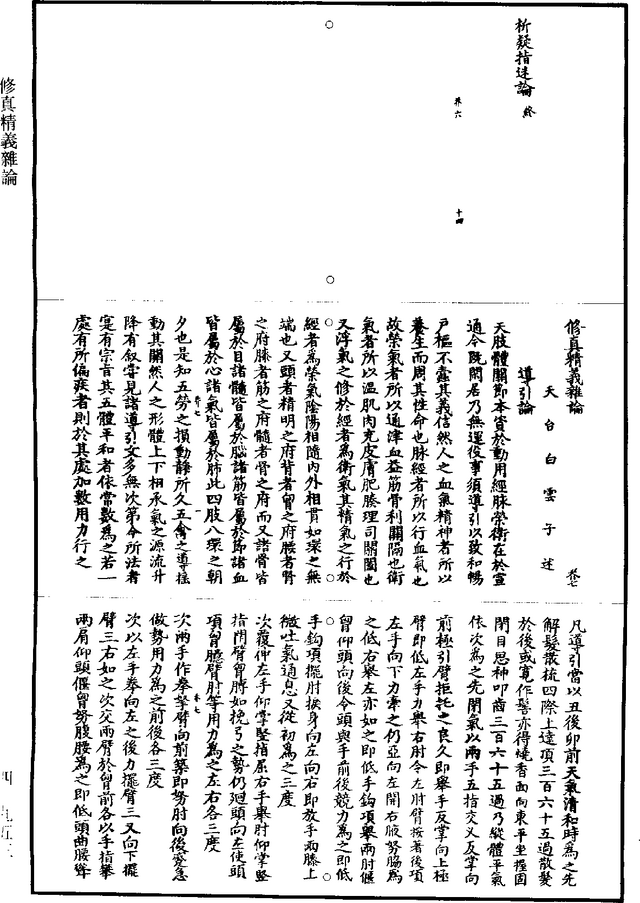 析疑指迷論 終
恭六 十四
修真精義雜論
天台白雲子述 恭七
導引論
夫肢體關節本資於動用經脉榮衛在於宣
通今既閑居乃無運役事須導引以致和暢
戶樞不蠹其義信然人之血氣精神者所以
養生而周其性命也脉經者所以行血氣也
故榮氣者所以通津血益筋骨利關隔也衛
氣者所以溫肌肉充皮膚肥腠理司關闔也
又浮氣之修於經者為衛氣其精氣之行於
經者為榮氣陰陽相隨內外相貫如環之無
端也又頭者精明之府背者胷之府腰者腎
之府膝者筋之府髓者骨之府而又諸骨皆
屬於目諸髓皆屬於腦諸筋皆屬於節諸血
皆屬於心諸氣皆屬於肺此四肢八環之朝
恭七 一
夕也是知五勞之損動靜所久五禽之導搖
動其關然人之形體上下相承氣之源流升
降有叙嘗見諸導引文多無次第今所法者
寔有宗旨其五體平和者依常數為之若一
處有所偏疾者則於其處加數用力行之
凡導引當以丑後卯前天氣清和時為之先
解髮散梳四際上達頂三百六十五過散髮
於後或寬作髻亦得燒香面向東平坐握固
閉目思神叩齒三百六十五過乃縱體平氣
依次為之先閉氣以兩手五指交叉反掌向
前極引臂拒托之良久即舉手反掌向上極
臂即低左手力舉右肘令左肘臂按著後項
左手向下力牽之仍亞向左開右腋努脇為
之低右舉左亦如之即低手鈎項舉兩肘偃
胷仰頭向後令頭與手前後競力為之即低
手鈎項擺肘捩身向左向右即放手兩膝上
微吐氣通息又從初為之三度
次覆仰左手仰掌豎指屈右手舉肘仰掌豎
指閉臂胷膊如挽弓之勢仍迴頭向左使頭
項胷臆臂肘等用力為之左右各三度
恭七
次兩手作拳拏臂向前築即努肘向後愛急
做勢用力為之前後各三度
次以左手拳向左之後力擺臂三又向下擺
臂三右如之次交兩臂於胷前各以手指攀
兩肩仰頭偃胷努腹腰為之即低頭曲腰聳
修真精義雜論
四 九五三